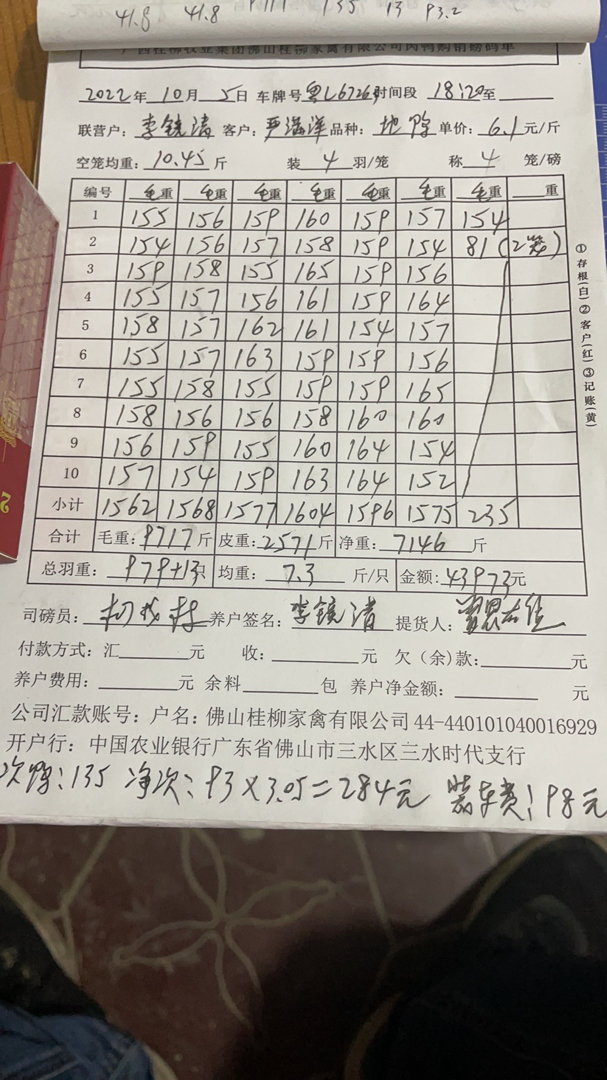 41.8 41.8 135 13 93.2
广西桂柳牧业集团佛山桂柳家禽有限公司肉鸭购销磅码单
2022年 10月 5日 车牌号 粤L6726 时间段 18:20至
联营户: 李镜清 客户: 严海洋 品种: 地鸭 单价: 6.1元/斤
空笼均重: 10.45斤 装 4 羽/笼 称 4 笼/磅
编号 毛重 毛重 毛重 毛重 毛重 毛重 毛重 重
1 155 156 159 160 159 157 154
2 154 156 157 158 159 154 81(2笼)
3 159 158 155 165 159 156
4 155 157 156 161 159 164
5 158 157 162 161 154 157
6 155 157 163 159 159 156
7 155 158 155 159 159 165
8 158 156 156 158 160 160
9 156 159 155 160 164 154
10 157 154 159 163 164 152
小计 1562 1568 1577 1604 1596 1575 235
合计 毛重: 9717斤 皮重: 2571斤 净重: 7146斤
总羽重: 979+13只 均重: 7.3斤/只 金额: 43973元
司磅员: 养户签名: 李镜清 提货人:
付款方式: 汇 元 收: 元 欠(余)款: 元
养户费用: 元 余料 包 养户净金额: 元
公司汇款账号: 户名: 佛山桂柳家禽有限公司 44-440101040016929
开户行: 中国农业银行广东省佛山市三水区三水时代支行
次鸭: 135 净次: 93×3.05=284元 装车费: 98元
①存根(白)②客户(红)③记账(黄)